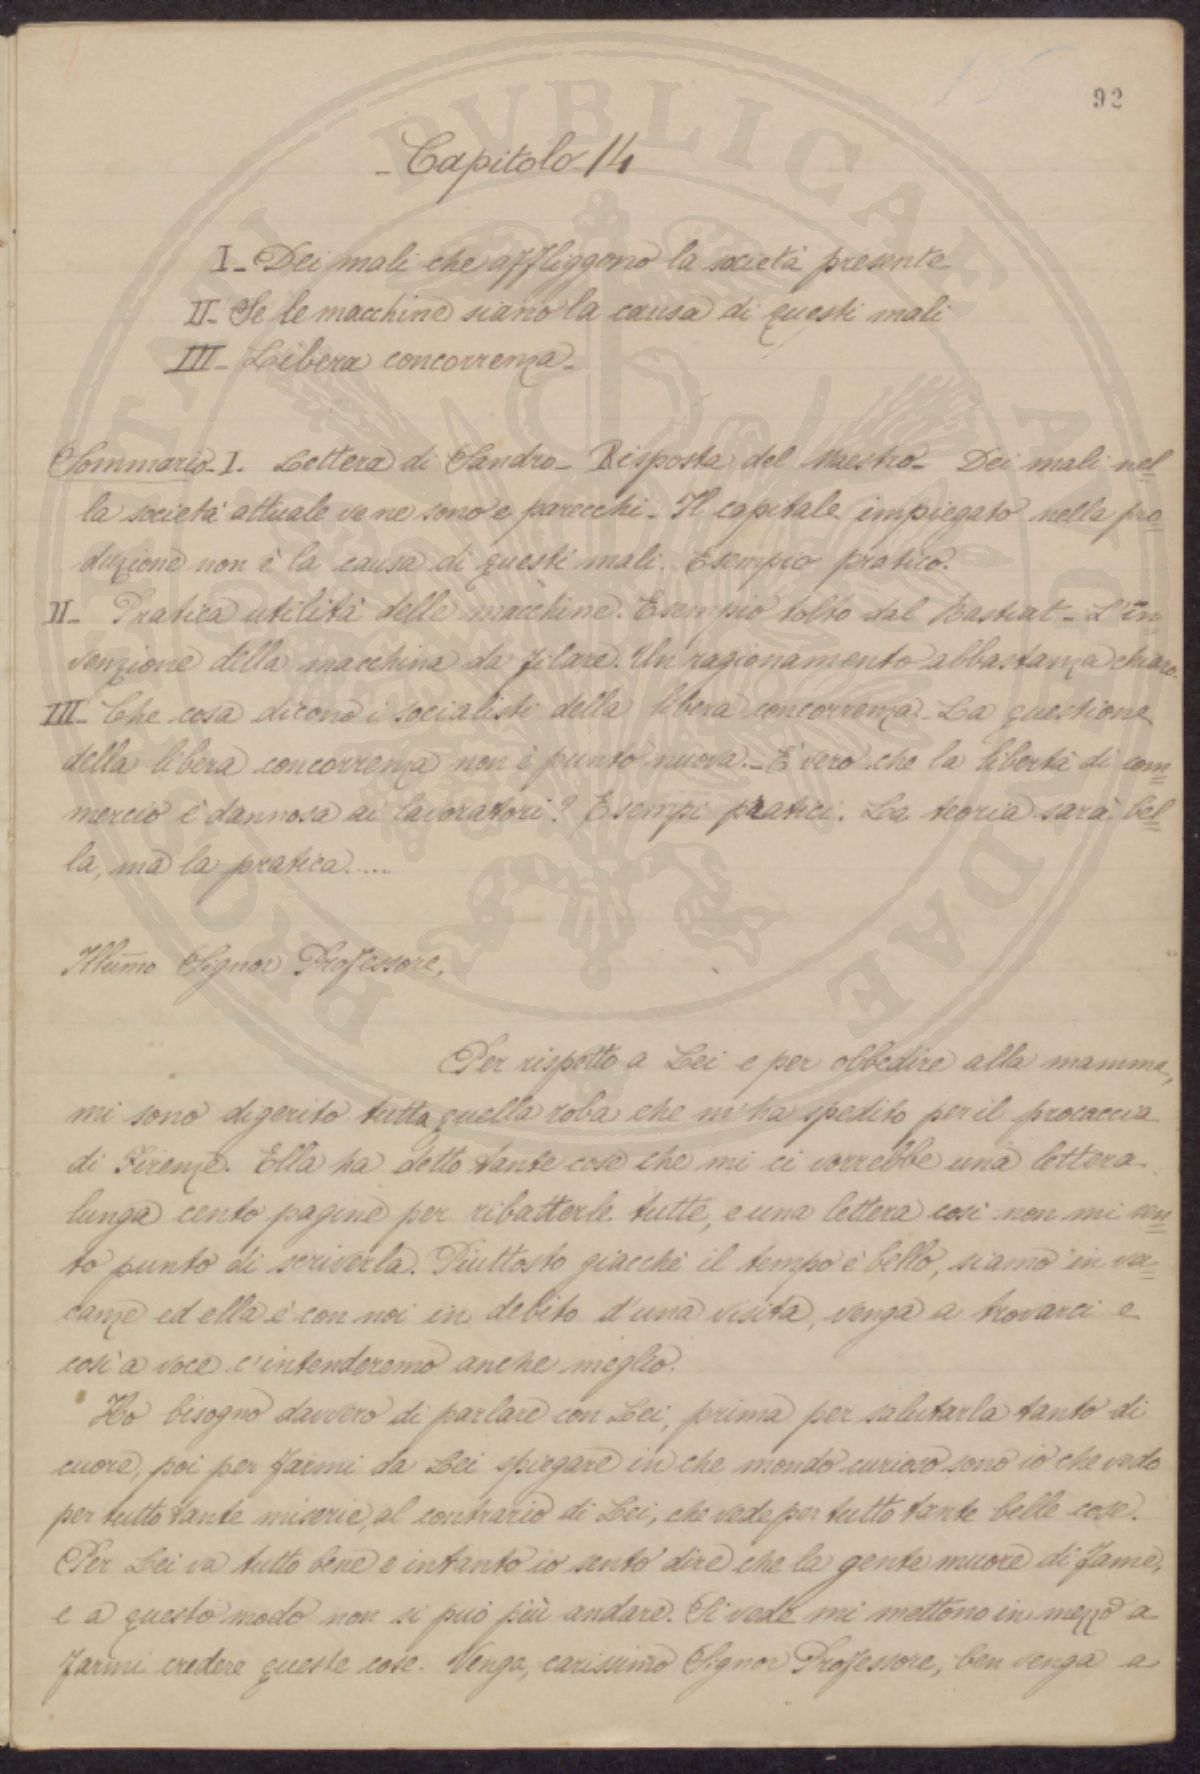 92
- Capitolo 14
I - Dei mali che affliggono la società presente
II - Se le macchine siano la causa di questi mali
III - Libera concorrenza -
Sommario - I - Lettera di Sandro - Risposta del Maestro - Dei mali nel=
la società attuale ve ne sono e parecchi - Il capitale impiegato nella pro=
duzione non è la causa di questi mali. Esempio pratico.
II - Pratica utilità delle macchine. Esempio tolto dal Bastiat - L'in=
venzione della macchina da filare. Un ragionamento abbastanza chiaro.
III - Che cosa dicono i socialisti della libera concorrenza - La questione
della libera concorrenza non è punto nuova. - È vero che la libertà di com=
mercio è dannosa ai lavoratori? Esempi pratici. La teoria sarà bel=
la, ma la pratica.....
Illumo Signor Professore,
Per rispetto a Lei e per obbedire alla mamma,
mi sono digerito tutta quella roba che m'ha spedito per il procaccia
di Firenze. Ella ha detto tante cose che mi ci vorrebbe una lettera
lunga cento pagine per ribatterle tutte, e una lettera così non mi sen=
to punto di scriverla. Piuttosto giacchè il tempo è bello, siamo in va=
canze ed ella è con noi in debito d'una visita, venga a trovarci e
così a voce c'intenderemo anche meglio.
Ho bisogno davvero di parlare con Lei, prima per salutarla tanto di
cuore, poi per farmi da Lei spiegare in che mondo curioso sono io che vedo
per tutto tante miserie, al contrario di Lei, che vede per tutto tante belle cose.
Per Lei va tutto bene e intanto io sento dire che la gente muore di fame,
e a questo modo non si può più andare. Si vede mi mettono in mezzo a
farmi credere queste cose. Venga, carissimo Signor Professore, ben venga a
PUBLICAE